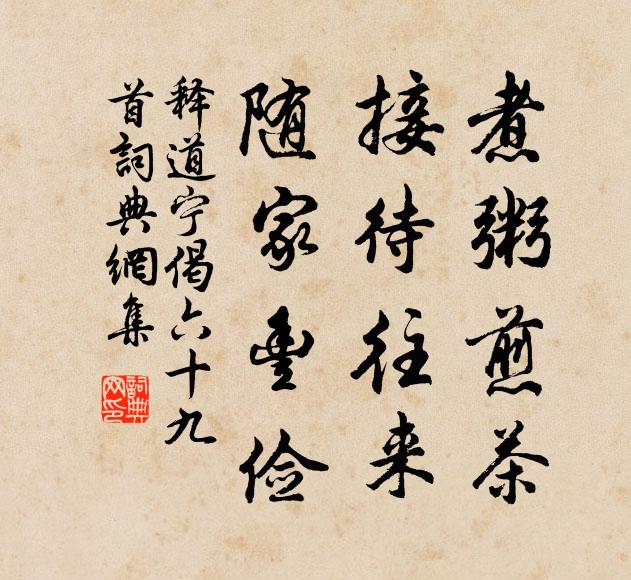 煮粥煎茶
接待往来
随家豊俭
释道宁偈六十九
首詞典網集
詞典
网印